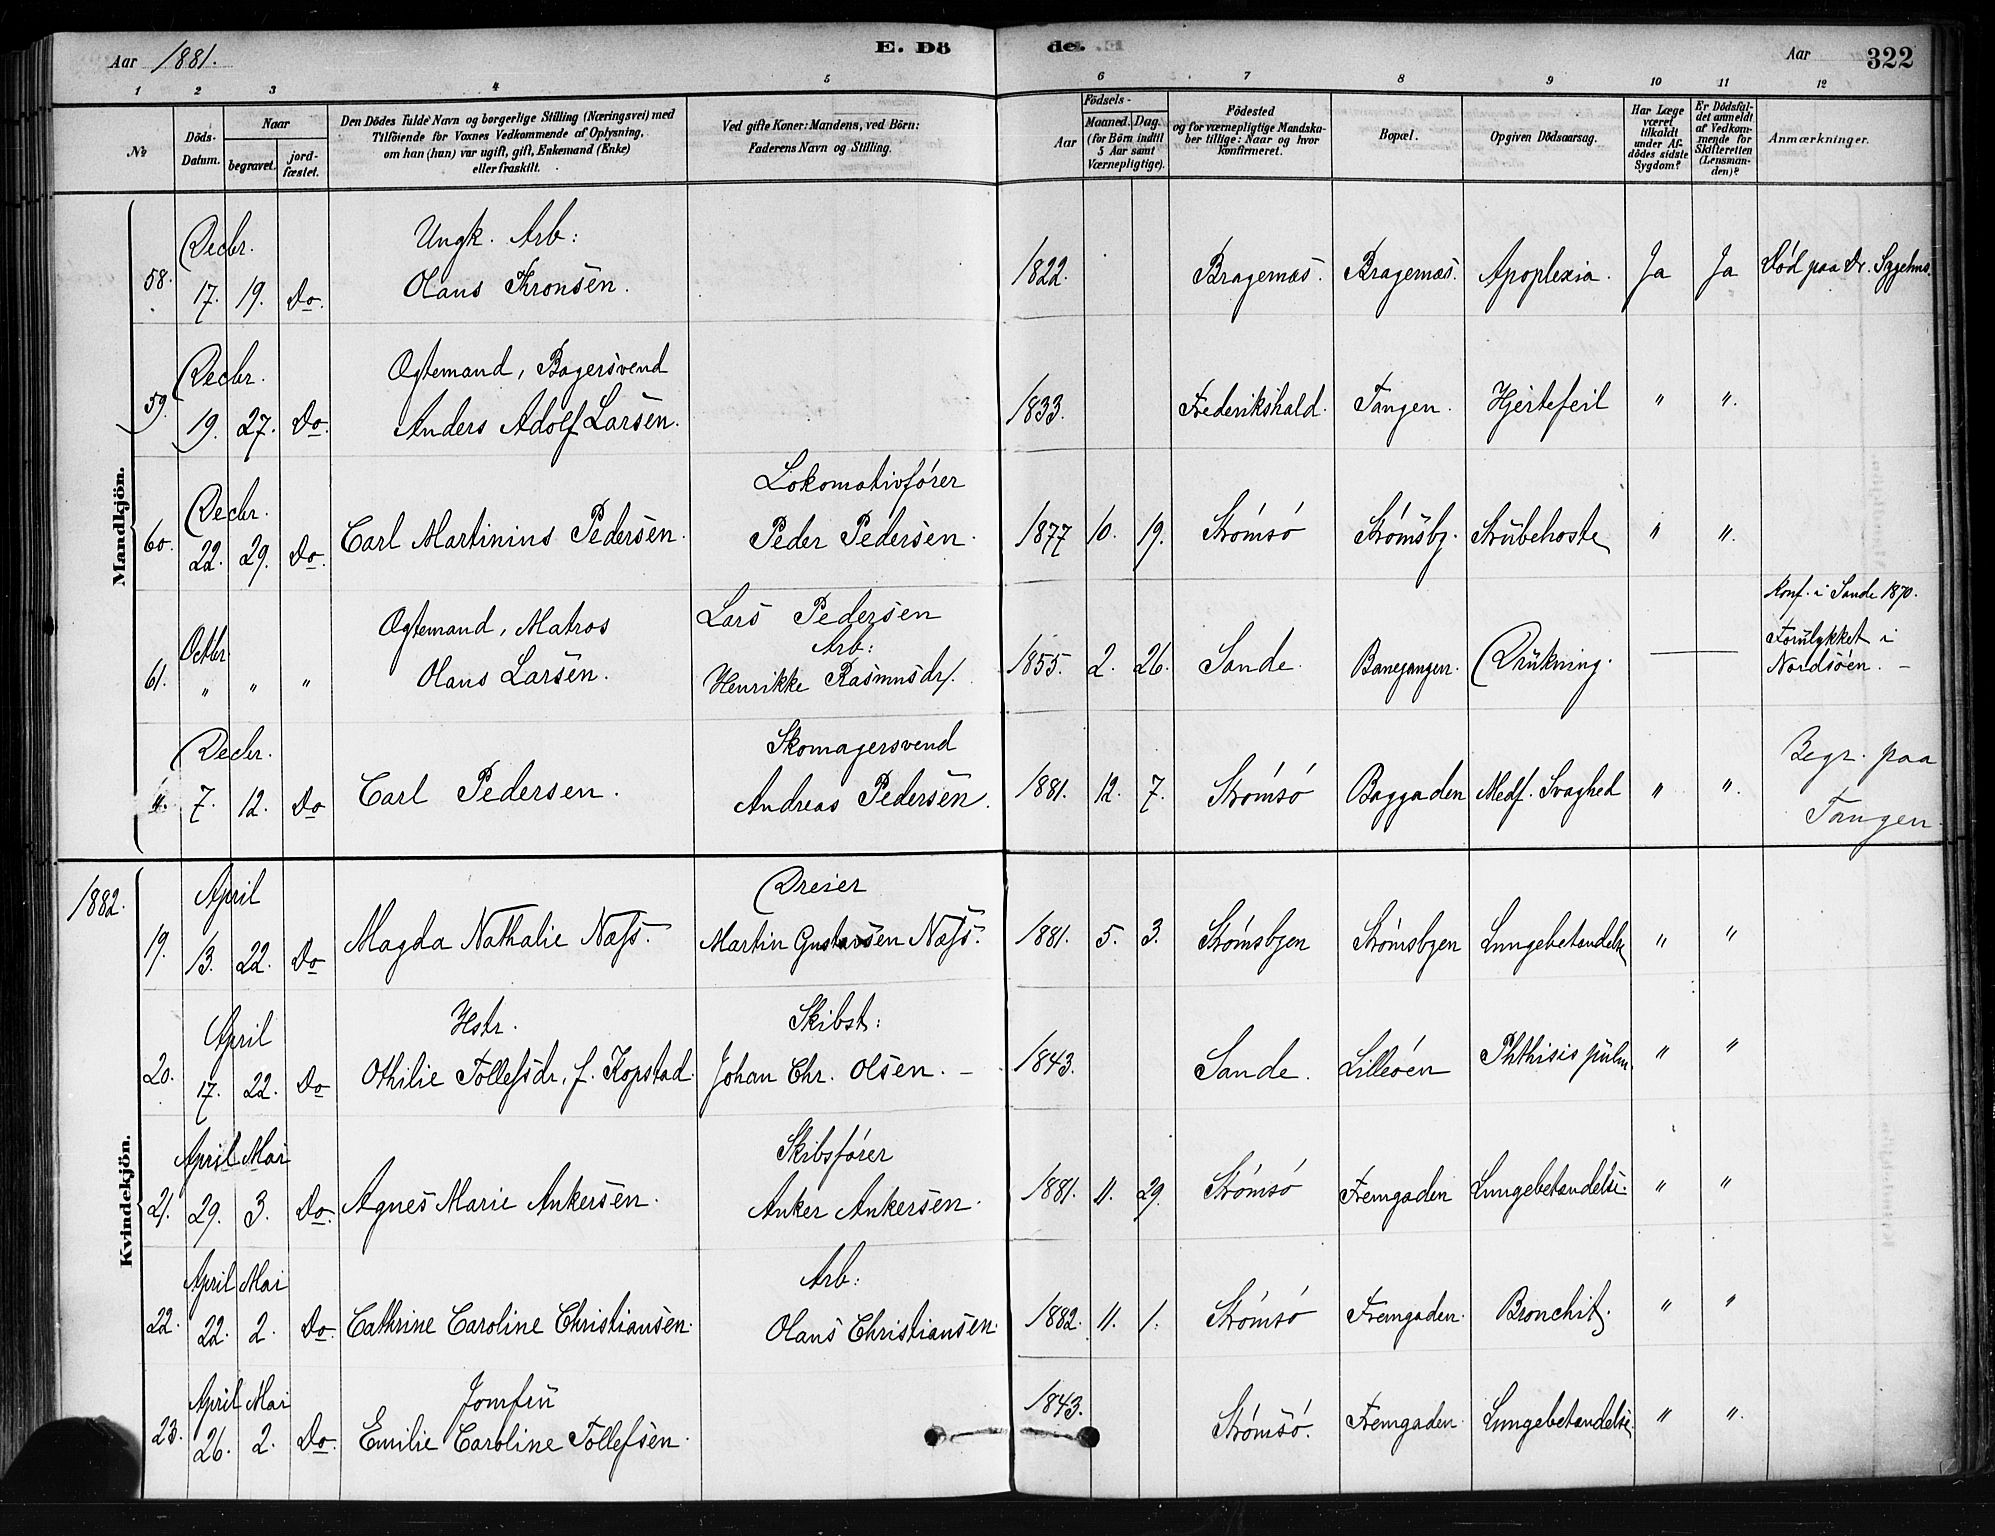 Aar 1881.
E. Dö
de.
Aar
322
1 2 3 4 5 6 7 8 9 10 11 12
No
Döds-Datum.
Naar
begravet.
jordfæstet.
Den Dödes fulde Navn og borgerlige Stilling (Næringsvei) med
Tilföiende for Voxnes Vedkommende af Oplysning,
om han (hun) var ugift, gift, Enkemand (Enke)
eller fraskilt.
Ved gifte Koner: Mandens, ved Börn:
Faderens Navn og Stilling.
Födsels-
Aar
Maaned.
Dag.
(for Börn indtil
5 Aar samt
Værnepligtige).
Födested
og for værnepligtige Mandska-
ber tillige: Naar og hvor
konfirmeret.
Bopæl.
Opgiven Dödsaarsag.
Har Læge
været
tilkaldt
under Af-
dödes sidste
Sygdom?
Er Dödsfal-
det anmeldt
af Vedkom-
mende for
Skifteretten
(Lensman-
den)?
Anmærkninger.
Mandkjön.
Decbr. Ungk. Arb:
58. 17. 19. Do. Olaus Thronsen. 1822. Bragernæs. Bragernæs. Apoplexia. Ja Ja Död paa Dr. Sygehus.
Decbr. Ogtemand, Bagersvend
59. 19. 27. Do. Anders Adolf Larsen. 1833. Frederikshald. Tangen. Hjertefeil " ".
Decbr. Lokomotivfører
60. 22. 29. Do. Carl Martinius Pedersen. Peder Pedersen. 1877 10. 19. Strømsö Strømsby. Strubehoste " ".
Konf. i Sande 1870.
Octbr Ogtemand, Matros Lars Pedersen Arb: Forulykket i
61. " " " Olaus Larsen. Henrikke Rasmusdr. 1855. 2. 26. Sande. Banegangen. Drukning. — Nordsøen. –
Decbr. Skomagersvend Begr. paa
". 7. 12. Do Carl Pedersen. Andreas Pedersen. 1881. 12. 7. Strømsö Baggaden Medf. Svaghed " ". Tangen.
1882.
Kvindekjön.
April Dreier
19. 13. 22. Do Magda Nathalie Næss. Martin Gustavsen Næss. 1881. 5. 3. Strømsbyen Strømsbyen Lungebetændelse " "
April Hstr. Skibst:
20. 17. 22. Do Othilie Tollefsdr. f. Kopstad. Johan Chr. Olsen. – 1843. Sande. Lilleøen Phthisis pulm. " "
April Mai Skibsfører
21. 29. 3. Do. Agnes Marie Ankersen. Anker Ankersen. 1881. 11. 29. Strømsö Fremgaden Lungebetændelse. " "
April Mai Arb:
22. 22. 2. Do. Cathrine Caroline Christiansen. Olaus Christiansen. 1882. 11. 1. Strømsö Fremgaden. Bronchit. " "
April Mai Jomfru
23. 26. 2. Do. Emilie Caroline Tollefsen. 1843. Strømsö. Fremgaden. Lungebetændelse " ".